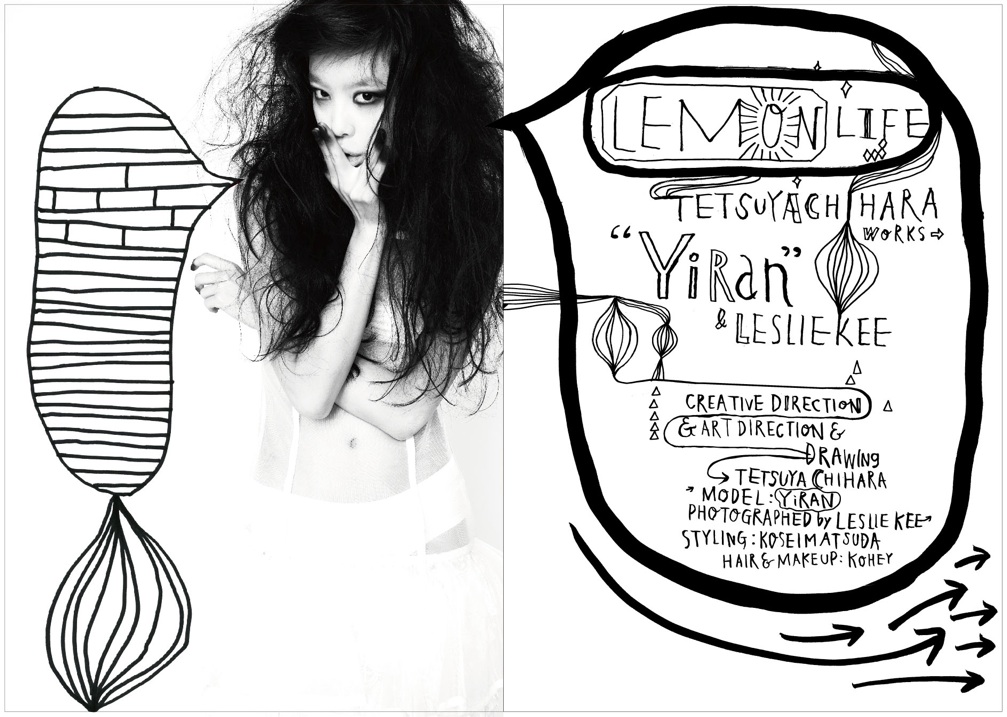 LEMON LIFE
TETSUYA CHIHARA
WORKS ⇨
“YiRan”
& LESLIE KEE
CREATIVE DIRECTION
& ART DIRECTION &
DRAWING
TETSUYA CHIHARA
MODEL: YiRAN
PHOTOGRAPHED by LESLIE KEE
STYLING: KOSEI MATSUDA
HAIR & MAKEUP: KOHEY